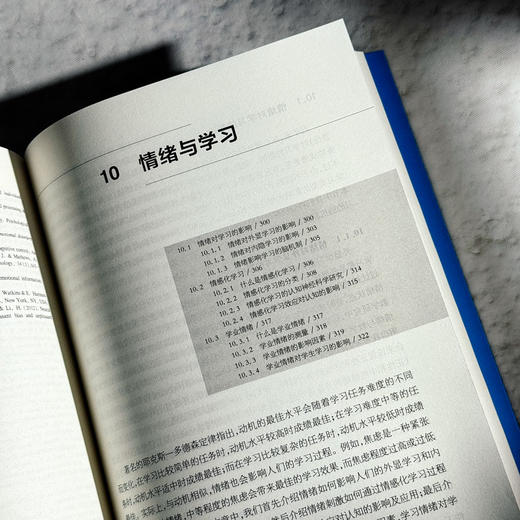 10 情绪与学习
10.1 情绪对学习的影响 / 300
10.1.1 情绪对外显学习的影响 / 300
10.1.2 情绪对内隐学习的影响 / 303
10.1.3 情绪影响学习的脑机制 / 305
10.2 情感化学习 / 306
10.2.1 什么是情感化学习 / 306
10.2.2 情感化学习的分类 / 308
10.2.3 情感化学习的认知神经科学研究 / 314
10.2.4 情感化学习效应对认知的影响 / 315
10.3 学业情绪 / 317
10.3.1 什么是学业情绪 / 317
10.3.2 学业情绪的测量 / 318
10.3.3 学业情绪的影响因素 / 319
10.3.4 学业情绪对学生学习的影响 / 322
著名的耶克斯—多德森定律指出，动机的最佳水平会随着学习任务难度的不同
而变化。在学习比较简单的任务时，动机水平较高时成绩最佳；在学习难度中等的任
务时，动机水平适中时成绩最佳；而在学习比较复杂的任务时，动机水平较低时成绩
最佳。实际上，与动机相似，情绪也会影响人们的学习过程。例如，焦虑是一种紧张
情绪，中等程度的焦虑会带来最佳的学习效果，而焦虑程度过高或过低
章中，我们首先介绍情绪如何影响人们的外显学习和内
然后介绍情绪刺激如何通过情感化学习过程
对认知的影响及应用；最后介
因素，学习情绪对学